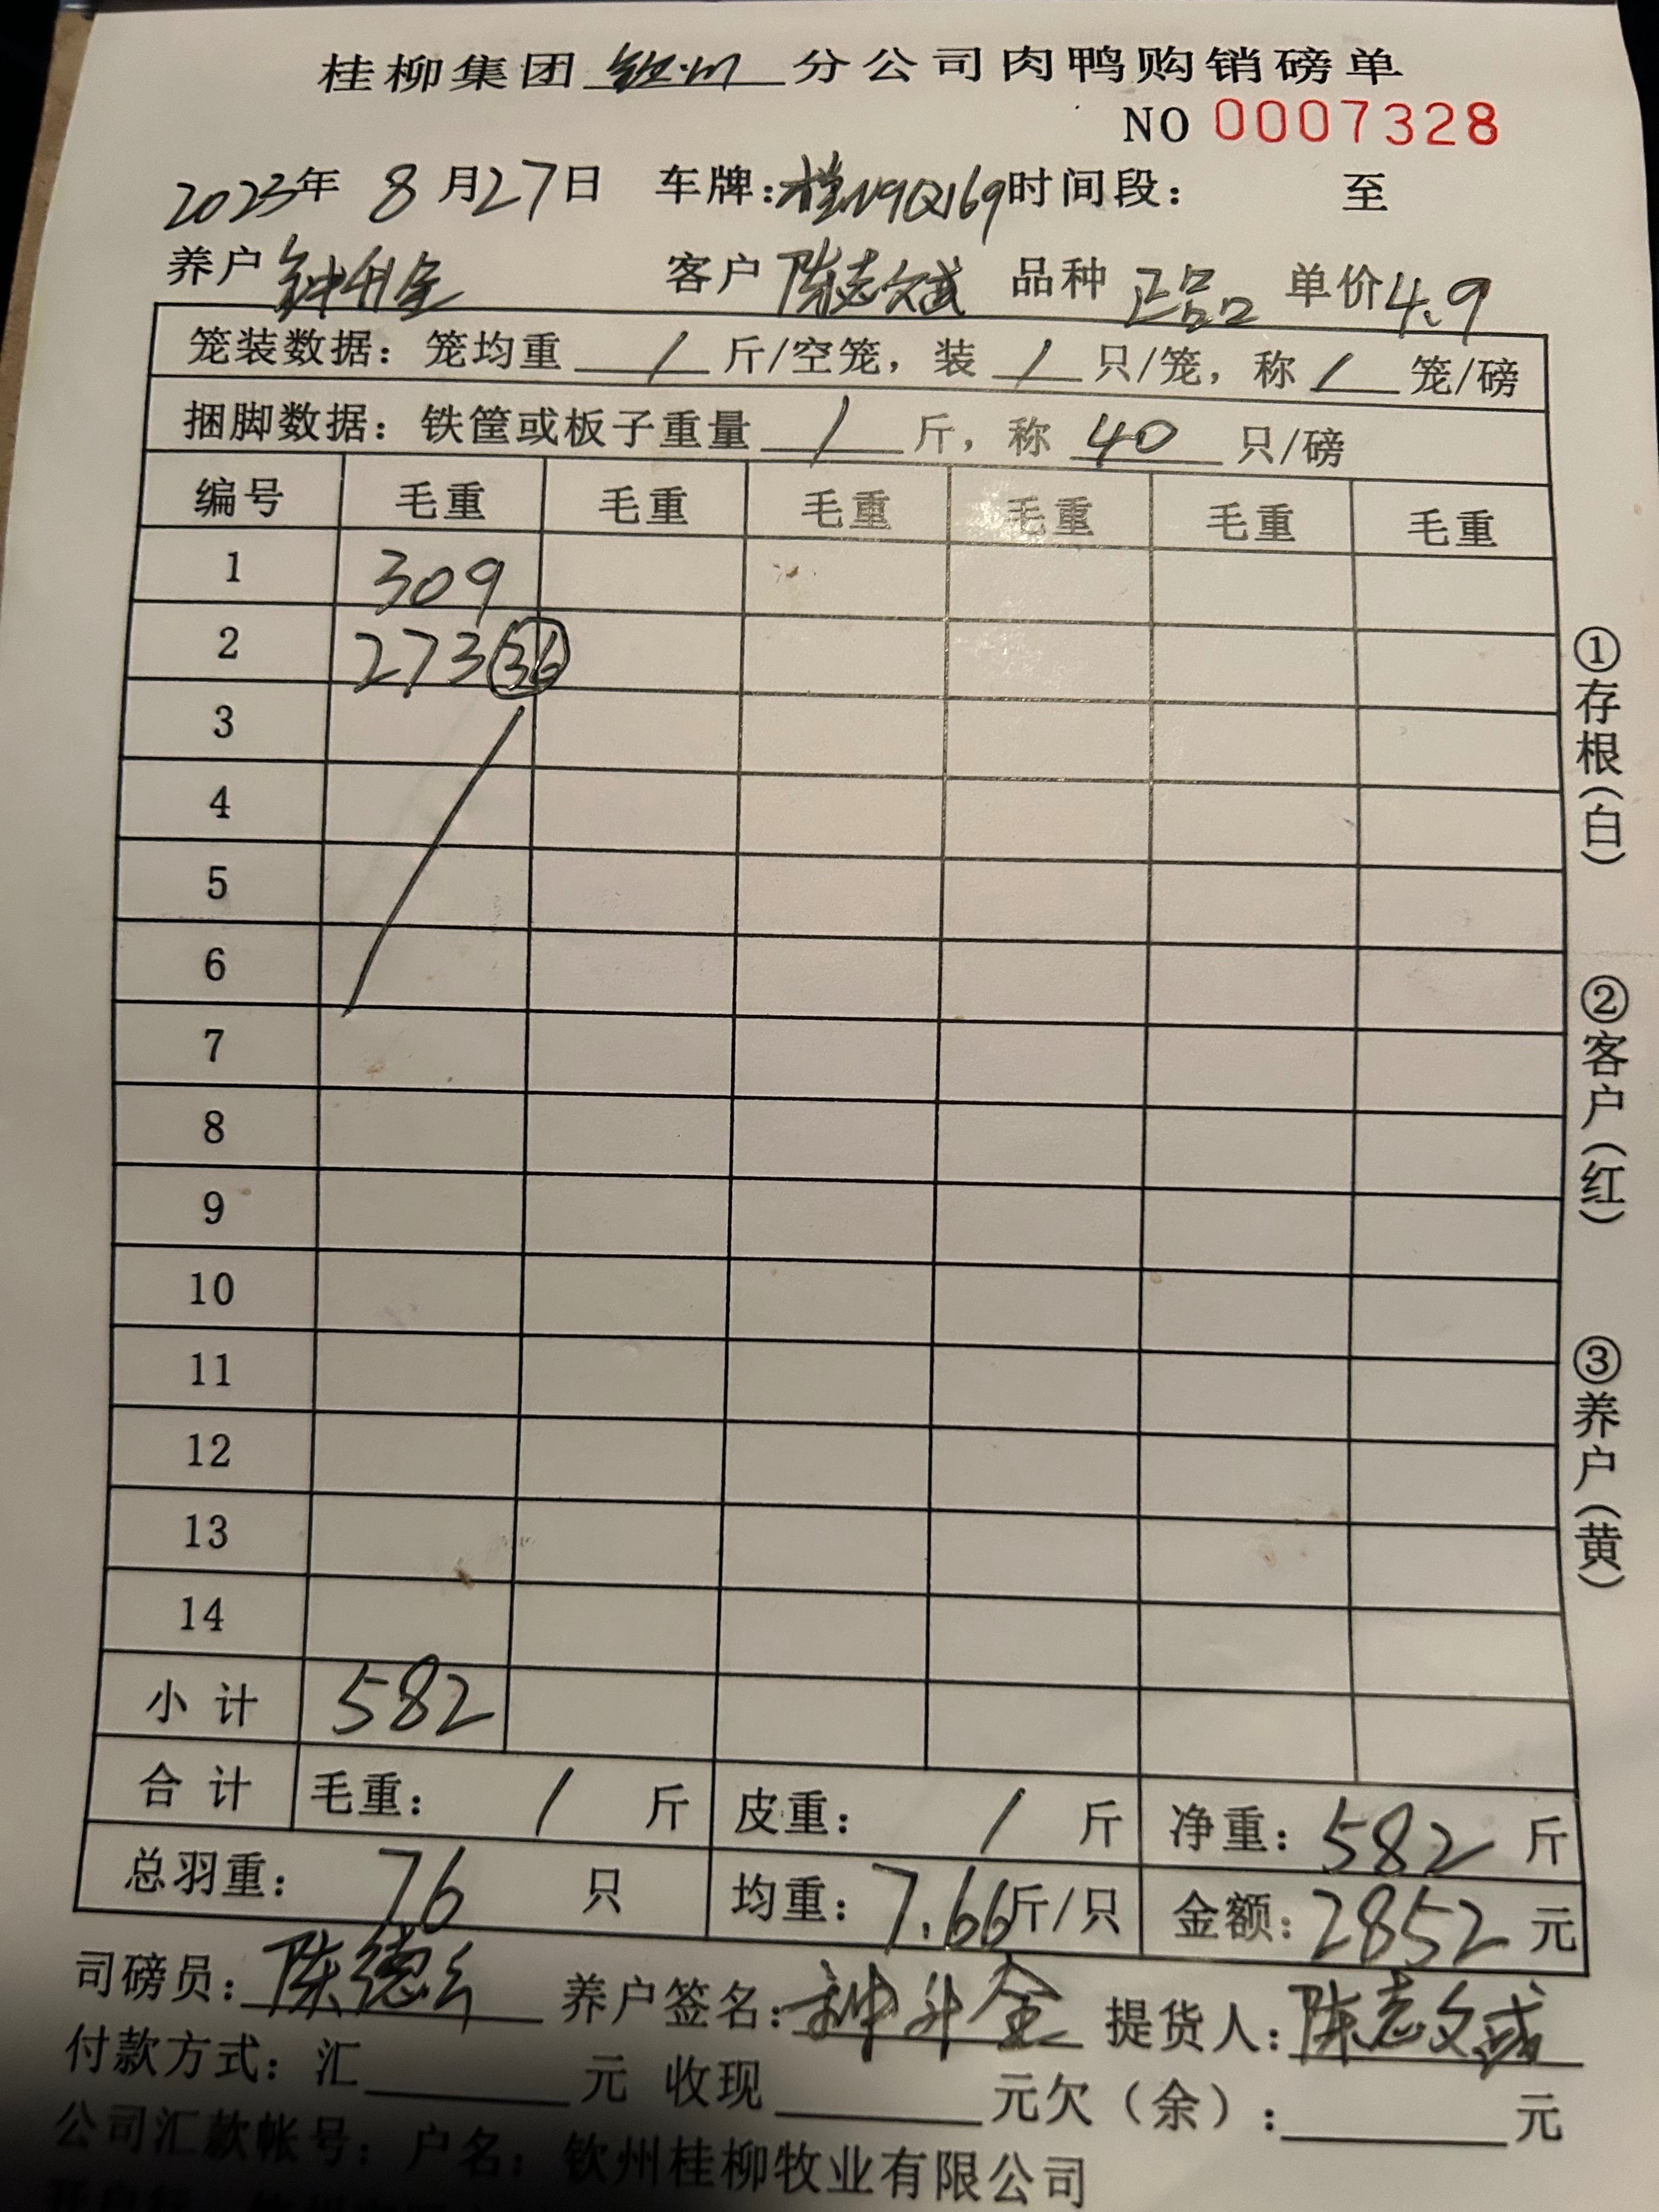 桂柳集团 钦州 分公司肉鸭购销磅单
NO 0007328
2023年 8月27日 车牌:桂N9Q169 时间段: 至
养户 钟升全 客户 陈志斌 品种 正品 单价4.9
笼装数据: 笼均重 / 斤/空笼, 装 / 只/笼, 称 / 笼/磅
捆脚数据: 铁筐或板子重量 / 斤, 称 40 只/磅
编号 毛重 毛重 毛重 毛重 毛重 毛重
1 309
2 273 36
3
4
5
6
7
8
9
10
11
12
13
14
小计 582
合计 毛重: / 斤 皮重: / 斤 净重: 582 斤
总羽重: 76 只 均重: 7.66斤/只 金额: 2852 元
司磅员: 陈德 养户签名: 钟升全 提货人: 陈志斌
付款方式: 汇 元 收现 元欠(余): 元
公司汇款帐号: 户名: 钦州桂柳牧业有限公司
①存根(白)
②客户(红)
③养户(黄)